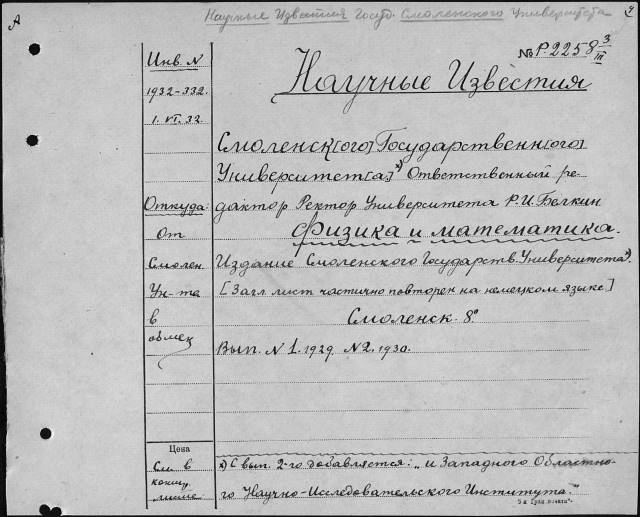 А
Научные Известия Госуд. Смоленского Университета
2
№ Р.2258 3/III
Инв. N
1932-332.
1. VI. 32.
Откуда:
От
Смолен
Ун-та
в
обмен
Научные Известия
Смоленск[ого] Государственн[ого]
Университет[а] *) Ответственный ре-
дактор Ректор Университета Р.И. Белкин
Физика и математика.
Издание Смоленского Государств. Университета*).
[Загл лист частично повторен на немецком языке]
Смоленск. 8°
Вып. N 1. 1929. N 2. 1930.
Цена
См. в
конц.
листе
*) С вып. 2-го добавляется: „и Западного Областно-
го Научно-Исследовательского Института."